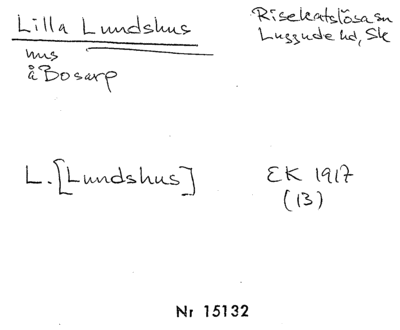 Lilla Lundshus
Risekatslösa sn
Luggude hd, Sk
hus
å Bosarp
L. [Lundshus]
EK 1917
(13)
Nr 15132